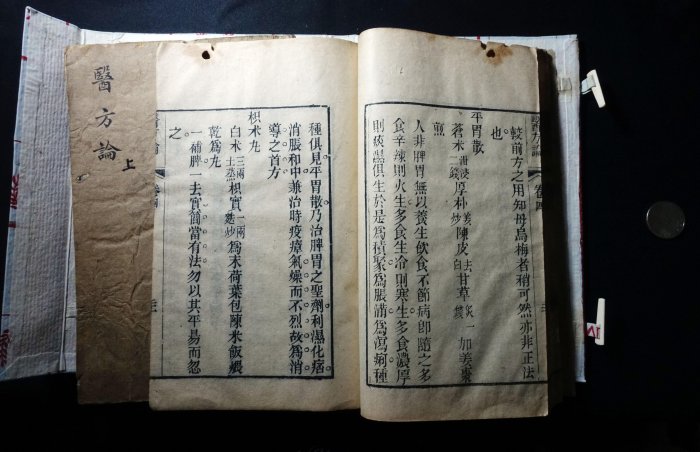 較前方之用知母烏梅者稍可然亦非正法
也
平胃散
蒼朮泔浸二錢厚朴姜炒陳皮去白甘草炙一錢加姜棗
煎
人非脾胃無以養生飲食不節病即隨之多
食辛辣則火生多食生冷則寒生多食濃厚
則痰濕俱生於是為積聚為脹滿為瀉痢種
種俱見平胃散乃治脾胃之聖劑利濕化痞
消脹和中兼治時疫瘴氣燥而不烈故為消
導之首方
枳朮丸
白朮三兩土蒸枳實一兩麩炒為末荷葉包陳米飯煨
乾為丸
一補脾一去實簡當有法勿以其平易而忽
之
醫方論 上